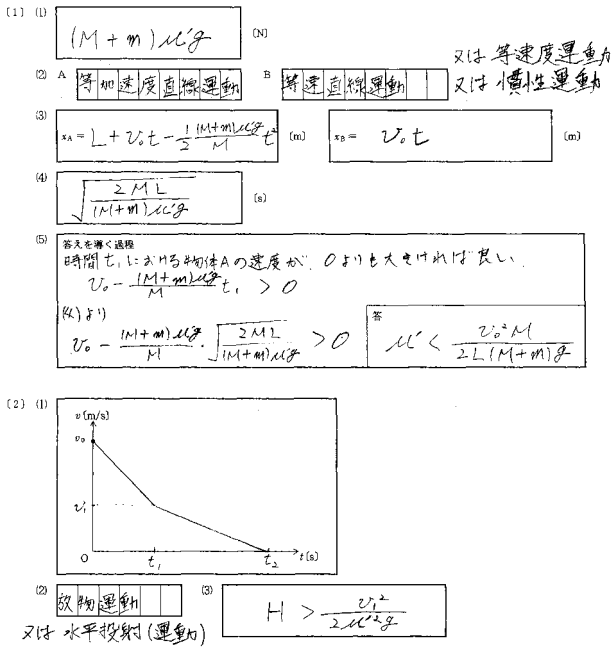 〔1〕 (1) (M + m) μ'g 〔N〕
(2) A 等加速度直線運動 B 等速直線運動 又は 等速度運動
又は 慣性運動
(3) x_A = L + v₀t − 1/2 (M+m)μ'g/M t² 〔m〕 x_B = v₀t 〔m〕
(4) √(2ML/((M+m)μ'g)) 〔s〕
(5) 答えを導く過程
時間 t₁ における物体Aの速度が、0よりも大きければ良い。
v₀ − (M+m)μ'g/M t₁ > 0
(4)より
v₀ − (M+m)μ'g/M · √(2ML/((M+m)μ'g)) > 0
答 μ' < v₀²M/(2L(M+m)g)
〔2〕 (1)
v〔m/s〕
v₀
v₁
O t₁ t₂ t〔s〕
(2) 放物運動 (3) H > v₁²/(2μ'²g)
又は 水平投射(運動)